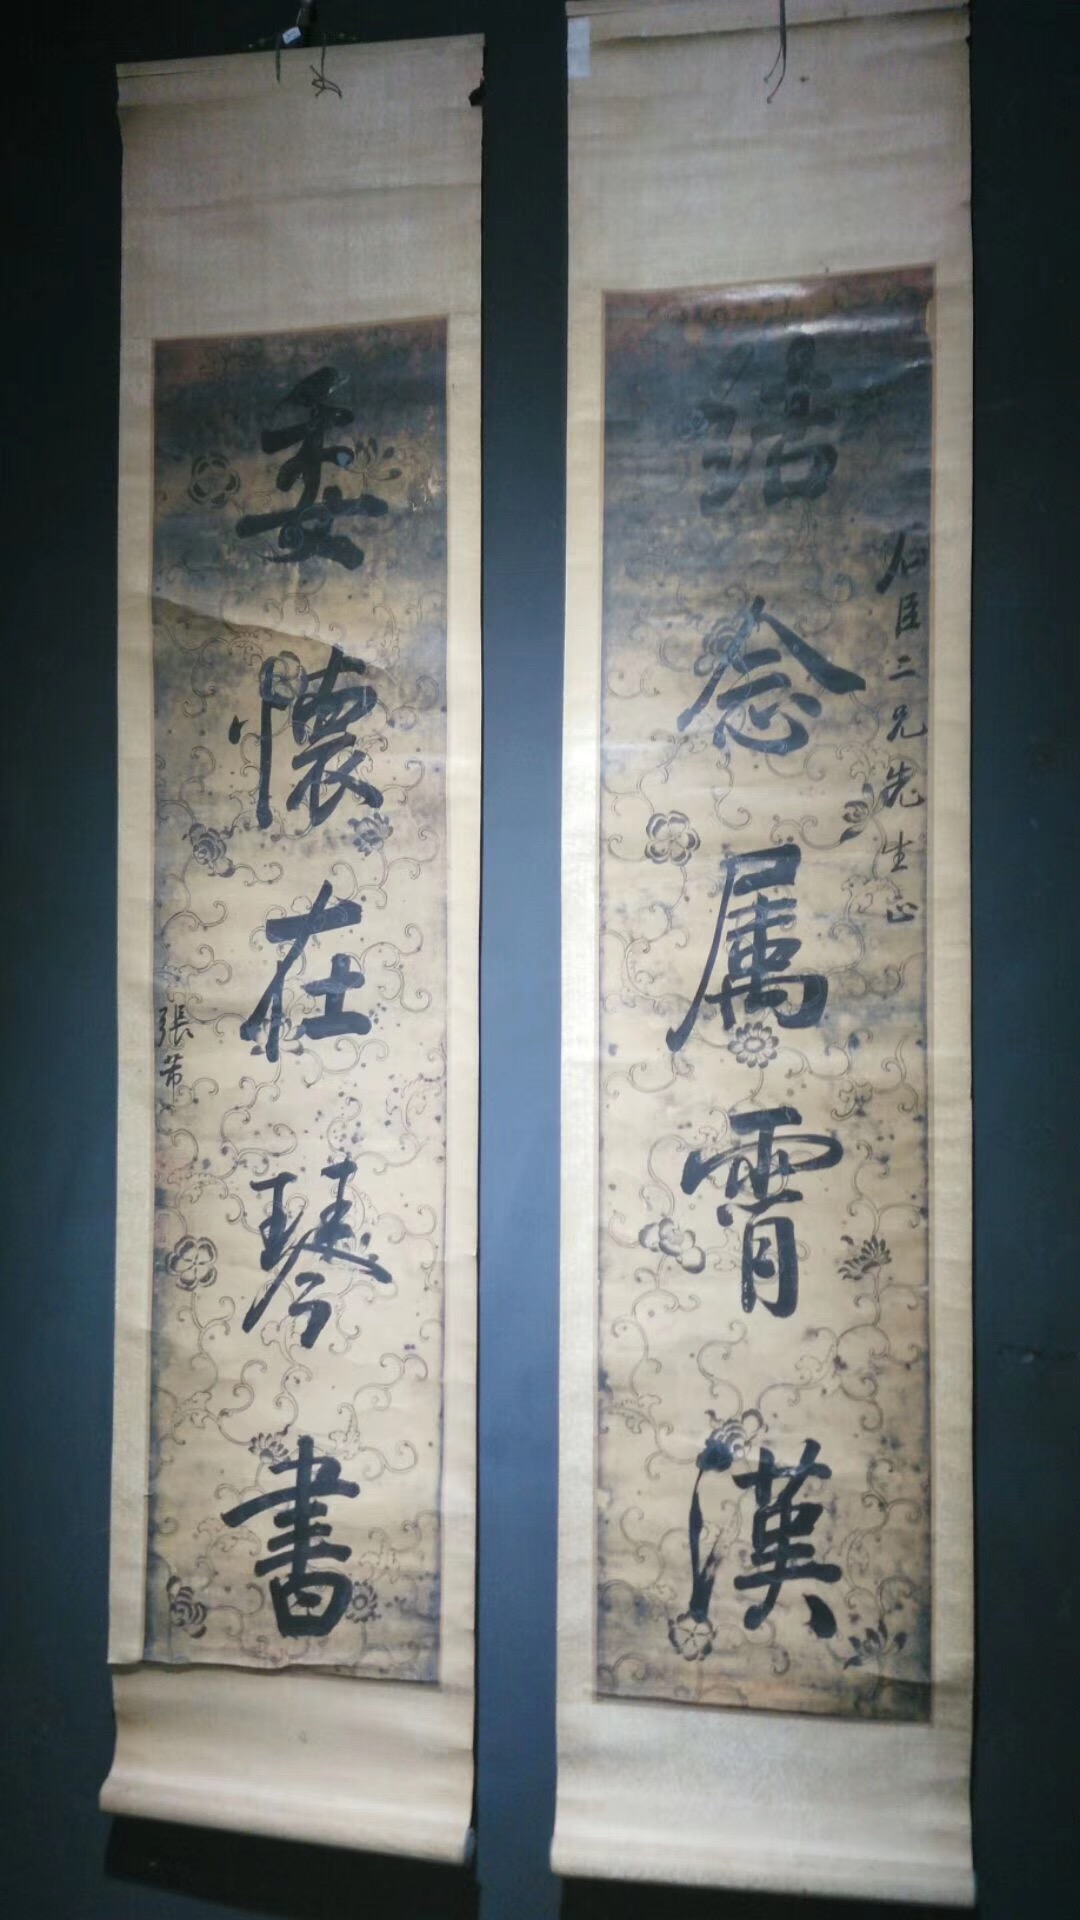 結念属霄漢
石臣二兄先生正
委懷在琴書
張芾